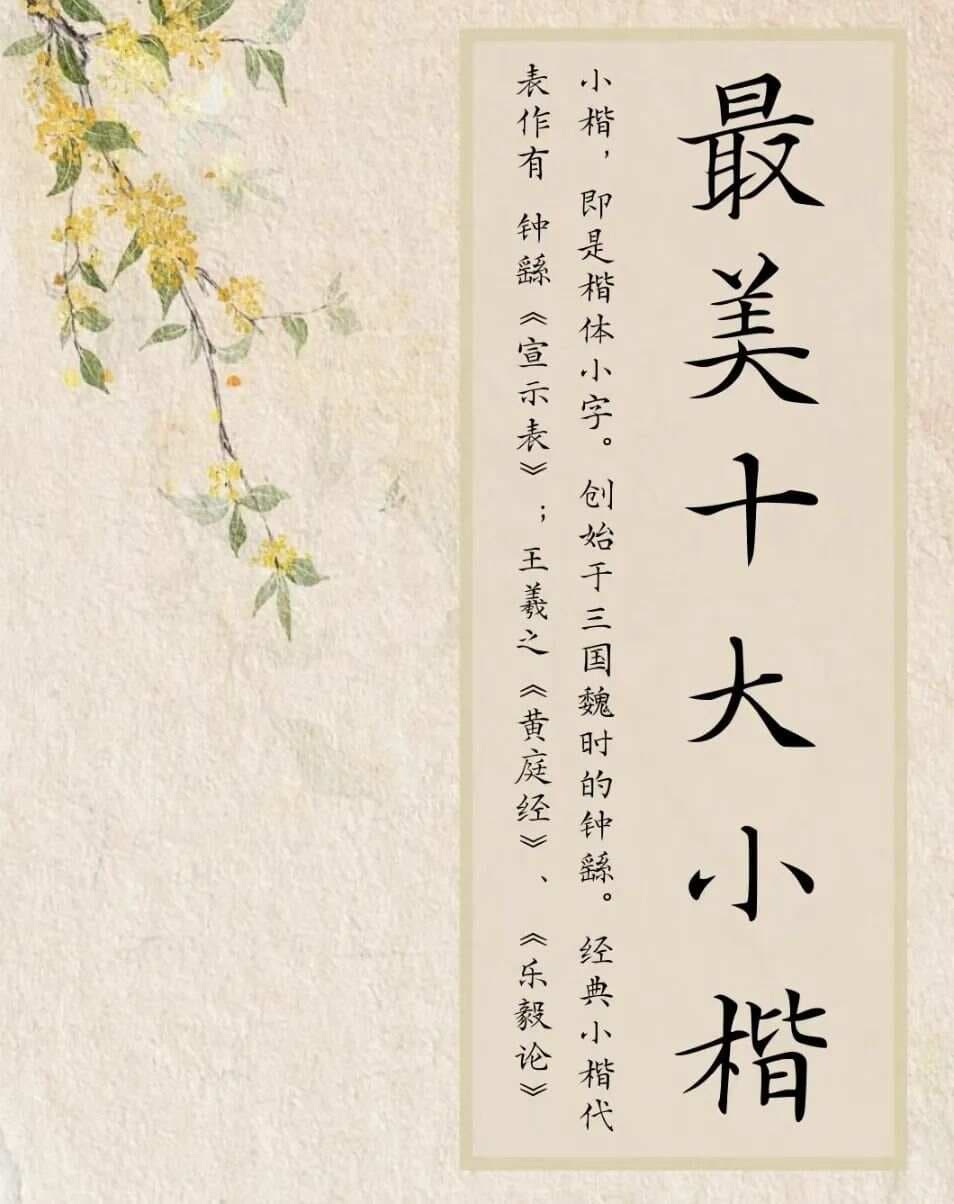 最美十大小楷
小楷，即是楷体小字。创始于三国魏时的钟繇。经典小楷代
表作有 钟繇《宣示表》；王羲之《黄庭经》、《乐毅论》